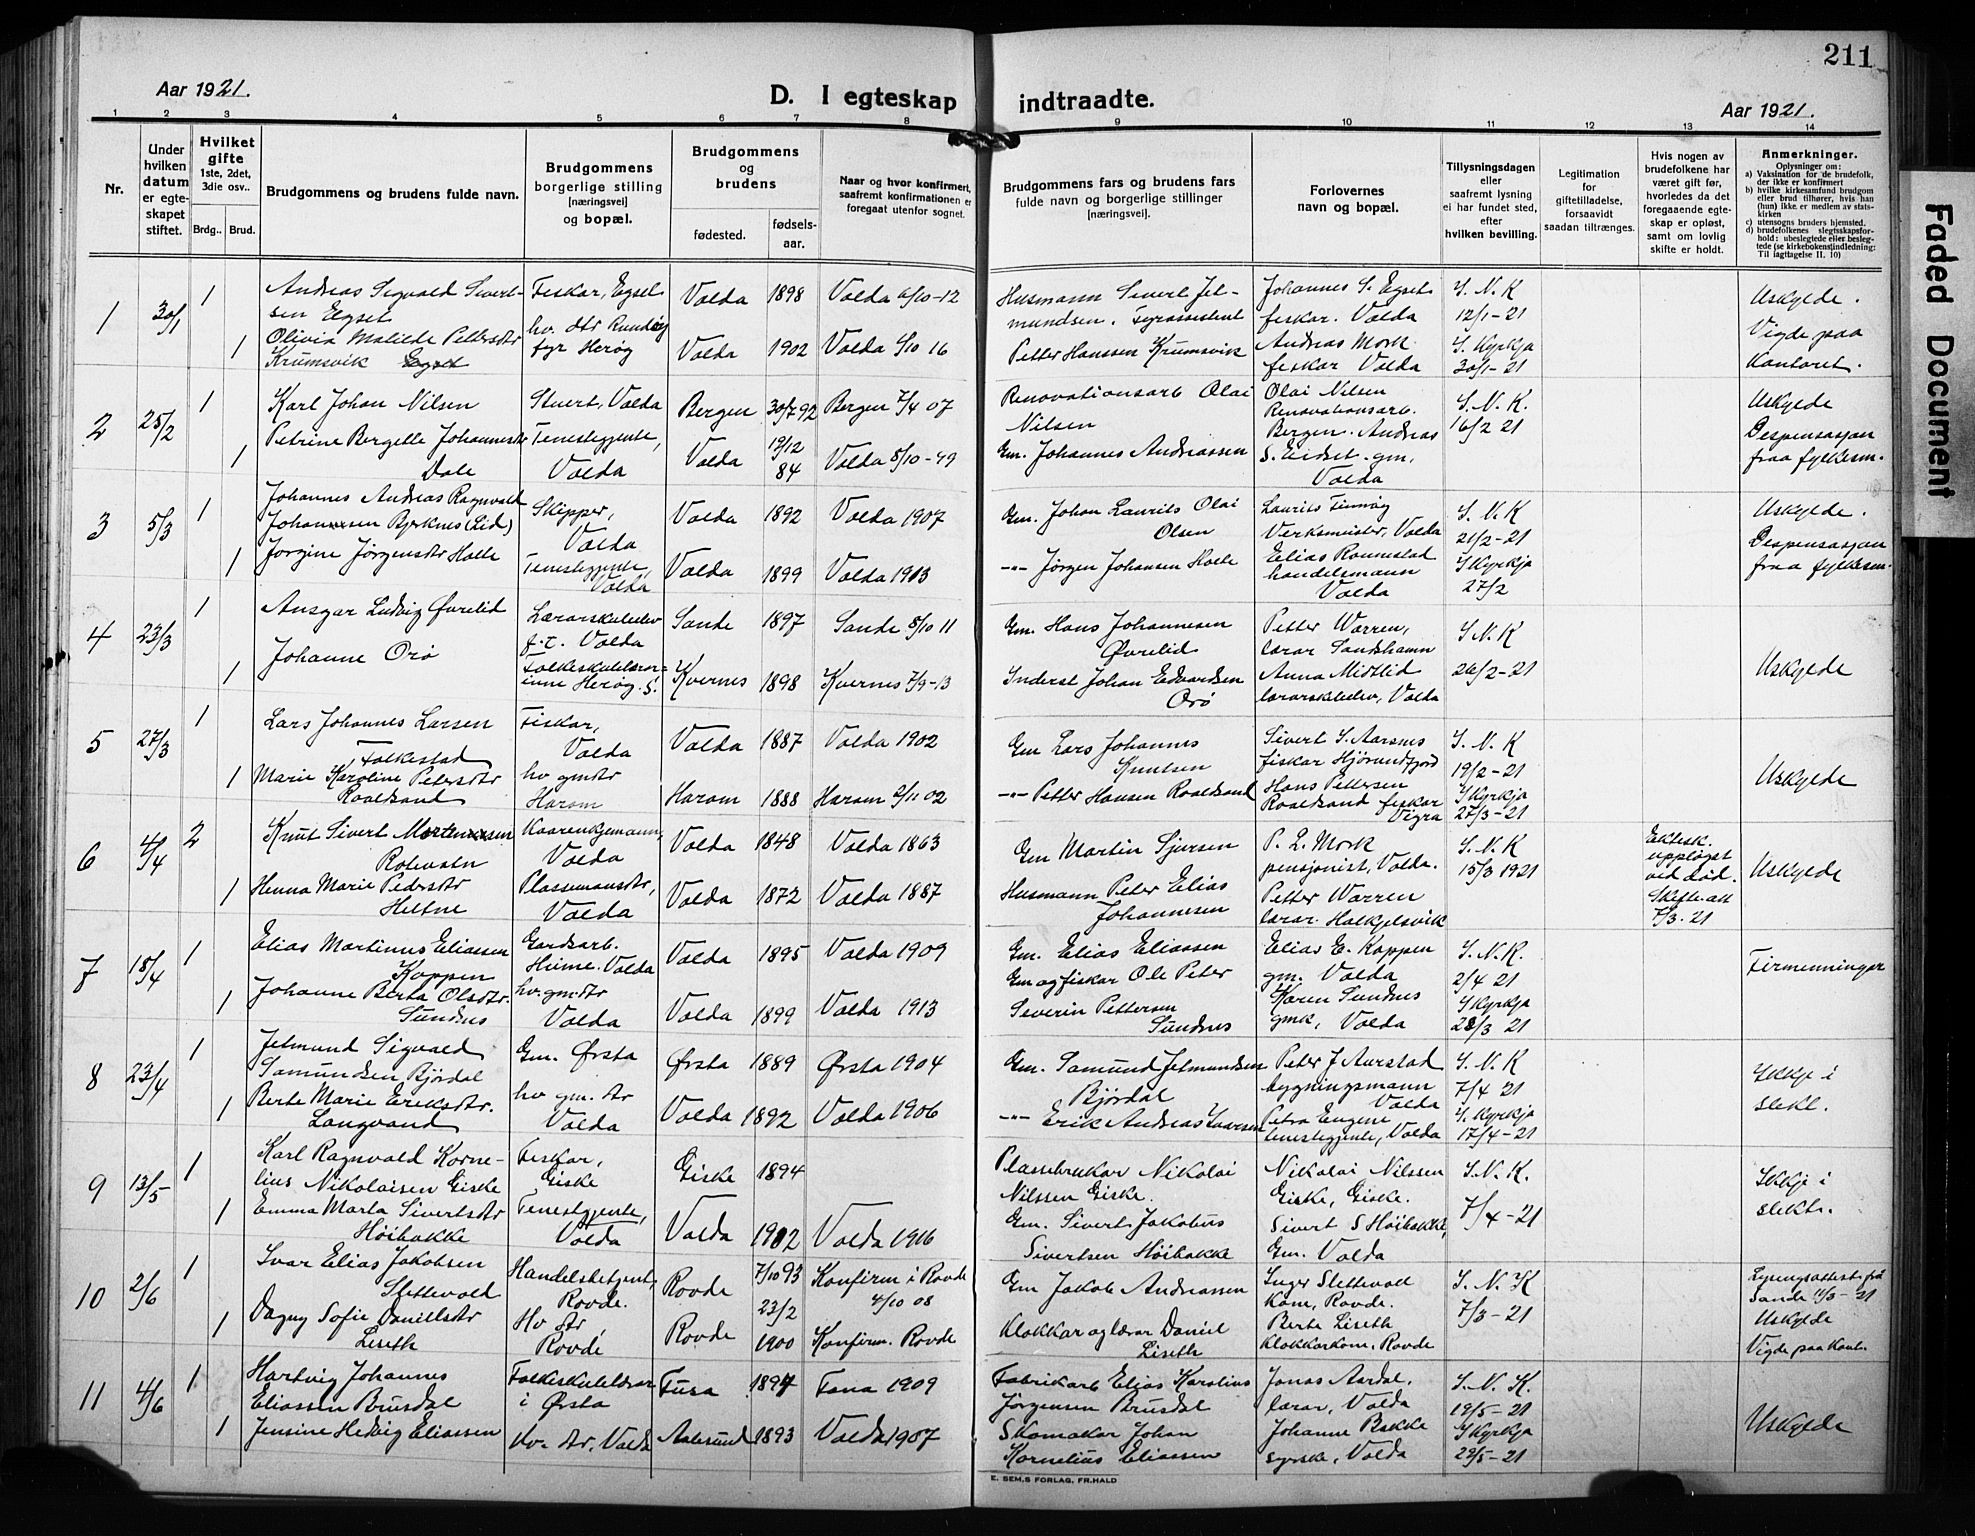 211
Aar 1921.
D. I egteskap indtraadte.
Aar 1921.
1 2 3 4 5 6 7 8 9 10 11 12 13 14
Nr.
Under hvilken datum er egteskapet stiftet.
Hvilket gifte 1ste, 2det, 3die osv..
Brdg.. Brud.
Brudgommens og brudens fulde navn.
Brudgommens borgerlige stilling [næringsvei] og bopæl.
Brudgommens og brudens
fødested. fødsels-aar.
Naar og hvor konfirmert, saafremt konfirmationen er foregaat utenfor sognet.
Brudgommens fars og brudens fars fulde navn og borgerlige stillinger [næringsvei].
Forlovernes navn og bopæl.
Tillysningsdagen eller saafremt lysning ei har fundet sted, efter hvilken bevilling.
Legitimation for giftetilladelse, forsaavidt saadan tiltrænges.
Hvis nogen av brudefolkene har været gift før, hvorledes da det foregaaende egteskap er opløst, samt om lovlig skifte er holdt.
Anmerkninger.
Oplysninger om:
a) Vaksination for de brudefolk, der ikke er konfirmert
b) hvilke kirkesamfund brudgom eller brud tilhører, hvis han (hun) ikke er medlem av statskirken
c) utensogns bruders hjemsted.
d) brudefolkenes slegtsskapsforhold: ubeslegtede eller beslegtede (se kirkebokens indledning: Til iagttagelse II. 10)
1 30/1 1 Andreas Sigvald Sivertsen Egset Fiskar, Egset Volda 1898 Volda 6/10-12 Husmann Sivert Jetmundsen. Johannes S. Egset fiskar. Volda I. N. K 12/1-21 Uskylde.
1 Olivia Matilde Pettersdtr Krumsvik hv. dtr Rundøy fyr Herøy Volda 1902 Volda 1/10 16 Fyrassistent Petter Hanssen Krumsvik Andreas Mork fiskar Volda I. Kyrkja 30/1-21 Vigde paa Kontoret.
2 25/2 1 Karl Johan Nilsen Stuert, Volda Bergen 30/7 92 Bergen 7/4 07 Renovationsarb Olai Nilsen Olai Nilsen Renovationsarb. Bergen. I. N. K. 16/2 21 Uskylde
1 Petrine Bergette Johannesdtr Dale Tenestegjente, Volda Volda 19/12 84 Volda 8/10-99 Gm. Johannes Andreassen Andreas S. Eidset. gm. Volda Despensasjon fraa fylkesm.
3 5/3 1 Johannes Andreas Ragnvald Johannesen Byrknes (Lid) Skipper, Volda Volda 1892 Volda 1907 Gm. Johan Laurits Olai Olsen Laurits Finnøy Verksmeister, Volda I. N. K 21/2-21 Uskylde.
1 Jorgine Jørgensdtr Holte Tenestegjente, Volda Volda 1899 Volda 1913 -"- Jørgen Johansen Holte Elias Ronnestad handelsmann Volda I Kyrkja 27/2 Despensasjon fraa fylkesm.
4 23/3 1 Ansgar Ludvig Øvrelid Lærarskuleelev f. t. Volda Sande 1897 Sande 8/10 11 Gm. Hans Johannesen Øvrelid Petter Warren, lærar Sandshamn I N. K 26/2-21
1 Johanne Orø Folkeskulelærarinne Herøy. S. Kvernes 1898 Kvernes 7/9-13 Inderst Johan Edvardsen Orø Anna Midtlid lærarskulelev, Volda Uskylde
5 27/3 1 Lars Johannes Larsen Folkestad Fiskar, Volda Volda 1887 Volda 1902 Gm Lars Johannes Knutsen Sivert S. Aarsnes fiskar Hjørundfjord I. N. K 19/2-21
1 Marie Karoline Petersdtr Roaldsand hv gmdtr Harom Harom 1888 Harom 2/11 02 -"- Petter Hansen Roaldsand Hans Pettersen Roaldsand fiskar Vigra I Kyrkja 27/3-21 Uskylde
6 4/4 2 Knut Sivert Martinussen Rotevatn Kaarenkjemann, Volda Volda 1848 Volda 1863 Gm Martin Sjursen P. L. Mork pensjonist, Volda. I. N. K 15/3 1921 Ektesk. uppløyst ved død. Skifte-att 7/3. 21 Uskylde
1 Henna Marie Pedersdtr Heltne Plassemansdtr, Volda Volda 1872 Volda 1887 Husmann Peter Elias Johannesen Petter Warren lærar. Halkjelsvik
7 15/4 1 Elias Martinus Eliassen Koppen Gardsarb. Heime. Volda Volda 1895 Volda 1909 Gm. Elias Eliassen Elias E. Koppen gm. Volda I. N. K. 2/4 21 Firmenningar
1 Johanne Berta Olsdtr. Sundnes hv. gm. dtr Volda Volda 1899 Volda 1913 Gm og fiskar Ole Peter Severin Pettersen Sundnes Karen Sundnes gmk, Volda I Kyrkja 28/3 21
8 23/4 1 Jetmund Sigvald Samundsen Bjørdal Gm. Ørsta Ørsta 1889 Ørsta 1904 Gm. Samund Jetmundsen Bjørdal Peter J Aurstad bygningsmann Volda I. N. K 7/4 21 Ikkje i slekt.
1 Berte Marie Eriksdtr. Langvand hv gm. dtr Volda Volda 1892 Volda 1906 -"- Erik Andreas Iversen Petra Eugene tenestegjente, Volda I. Kyrkja 17/4-21
9 13/5 1 Karl Ragnvald Kornelius Nikolaisen Giske Fiskar, Giske Giske 1894 Plassebrukar Nikolai Nilssen Giske. Nikolai Nilssen Giske, Giske. I. N. K. 7/4-21 Ikkje i slekt.
1 Emma Marta Sivertsdtr Høibakke Tenestgjente, Volda Volda 1902 Volda 1916 Gm. Sivert Jakobus Sivertsen Høibakke Sivert S Høibakke, Gm. Volda
10 2/6 1 Ivar Elias Jakobsen Slettevold Handelsbetjent, Rovde. Rovde 7/10 93 Konfirm i Rovde 4/10 08 Gm Jakob Andreassen Inger Slettevoll kone, Rovde. I. N. K 7/3-21 Lysingsattest frå Sande 11/3-21
1 Dagny Sofie Danielsdtr Liseth Hv dtr, Rovde Rovde 23/2 1900 Konfirm. Rovde Klokkar og lærar Daniel Liseth Berte Liseth klokkarkone, Rovde Uskylde Vigde paa Kont.
11 4/6 1 Hartvig Johannes Eliassen Brusdal Folkeskulelærar i Ørsta Fusa 1894 Fana 1909 Fabrikarb Elias Karolius Jørgensen Brusdal Jonas Aardal, lærar, Volda I. N. K. 19/5-21
1 Jensine Hedvig Eliassen Hv. dtr, Volda Aalesund 1893 Volda 1907 Skomakar Johan Kornelius Eliassen Johanne Bakke syerske, Volda I Kyrkja 22/5-21 Uskylde
E. SEM,S FORLAG, FR.HALD
Faded Document